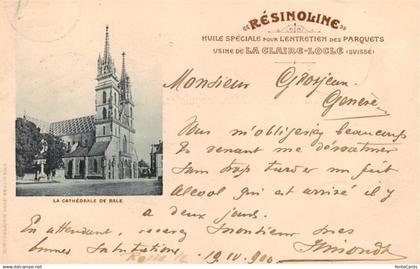 « RÉSINOLINE »
HUILE SPÉCIALE POUR L'ENTRETIEN DES PARQUETS
USINE DE LA CLAIRE-LOCLE (SUISSE)
Monsieur Grosjean
Genève
Vous m'obligeriez beaucoup
en venant me débarrasser
sans trop tarder un fût
alcool qui est arrivé il y
a deux jours.
En attendant, recevez Monsieur mes
bonnes salutations
19 IV 900
LA CATHÉDRALE DE BALE